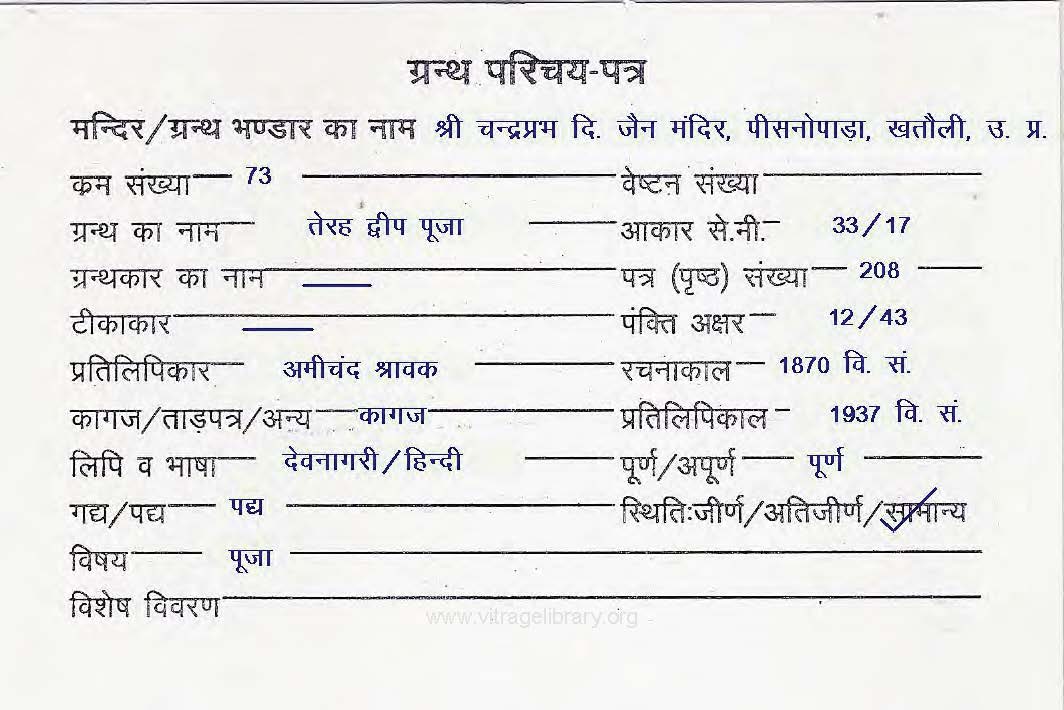 ग्रन्थ परिचय-पत्र
मन्दिर/ग्रन्थ भण्डार का नाम श्री चन्द्रप्रभ दि. जैन मंदिर, पीसनोपाड़ा, खतौली, उ. प्र.
क्रम संख्या 73 वेष्टन संख्या
ग्रन्थ का नाम तेरह द्वीप पूजा आकार से.मी. 33/17
ग्रन्थकार का नाम पत्र (पृष्ठ) संख्या 208
टीकाकार पंक्ति अक्षर 12/43
प्रतिलिपिकार अमीचंद श्रावक रचनाकाल 1870 वि. सं.
कागज/ताड़पत्र/अन्य कागज प्रतिलिपिकाल 1937 वि. सं.
लिपि व भाषा देवनागरी/हिन्दी पूर्ण/अपूर्ण पूर्ण
गद्य/पद्य पद्य स्थितिःजीर्ण/अतिजीर्ण/सामान्य
विषय पूजा
विशेष विवरण
www.vitragelibrary.org